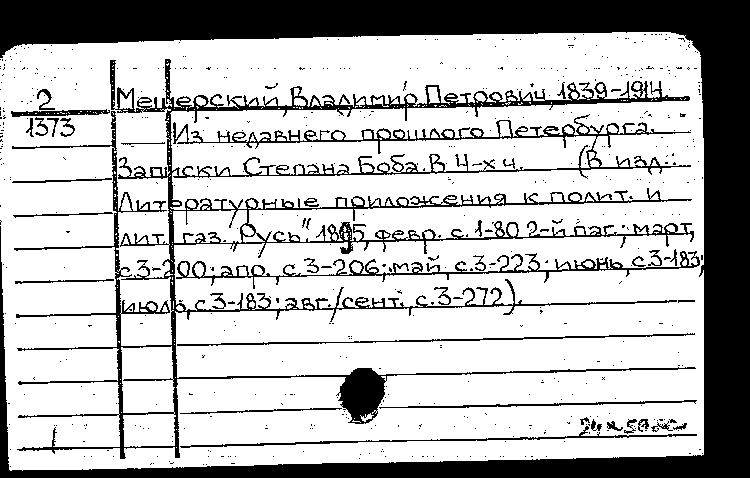 2
1373
Мещерский, Владимир Петрович, 1839-1914.
Из недавнего прошлого Петербурга.
Записки Степана Боба. В 4-х ч. (В изд.:
Литературные приложения к полит. и
лит. газ. "Русь". 1895, февр. с. 1-80 2-й паг.; март,
с.3-200; апр., с.3-206; май, с.3-223; июнь, с.3-183;
июль, с.3-183; авг./сент., с.3-272).